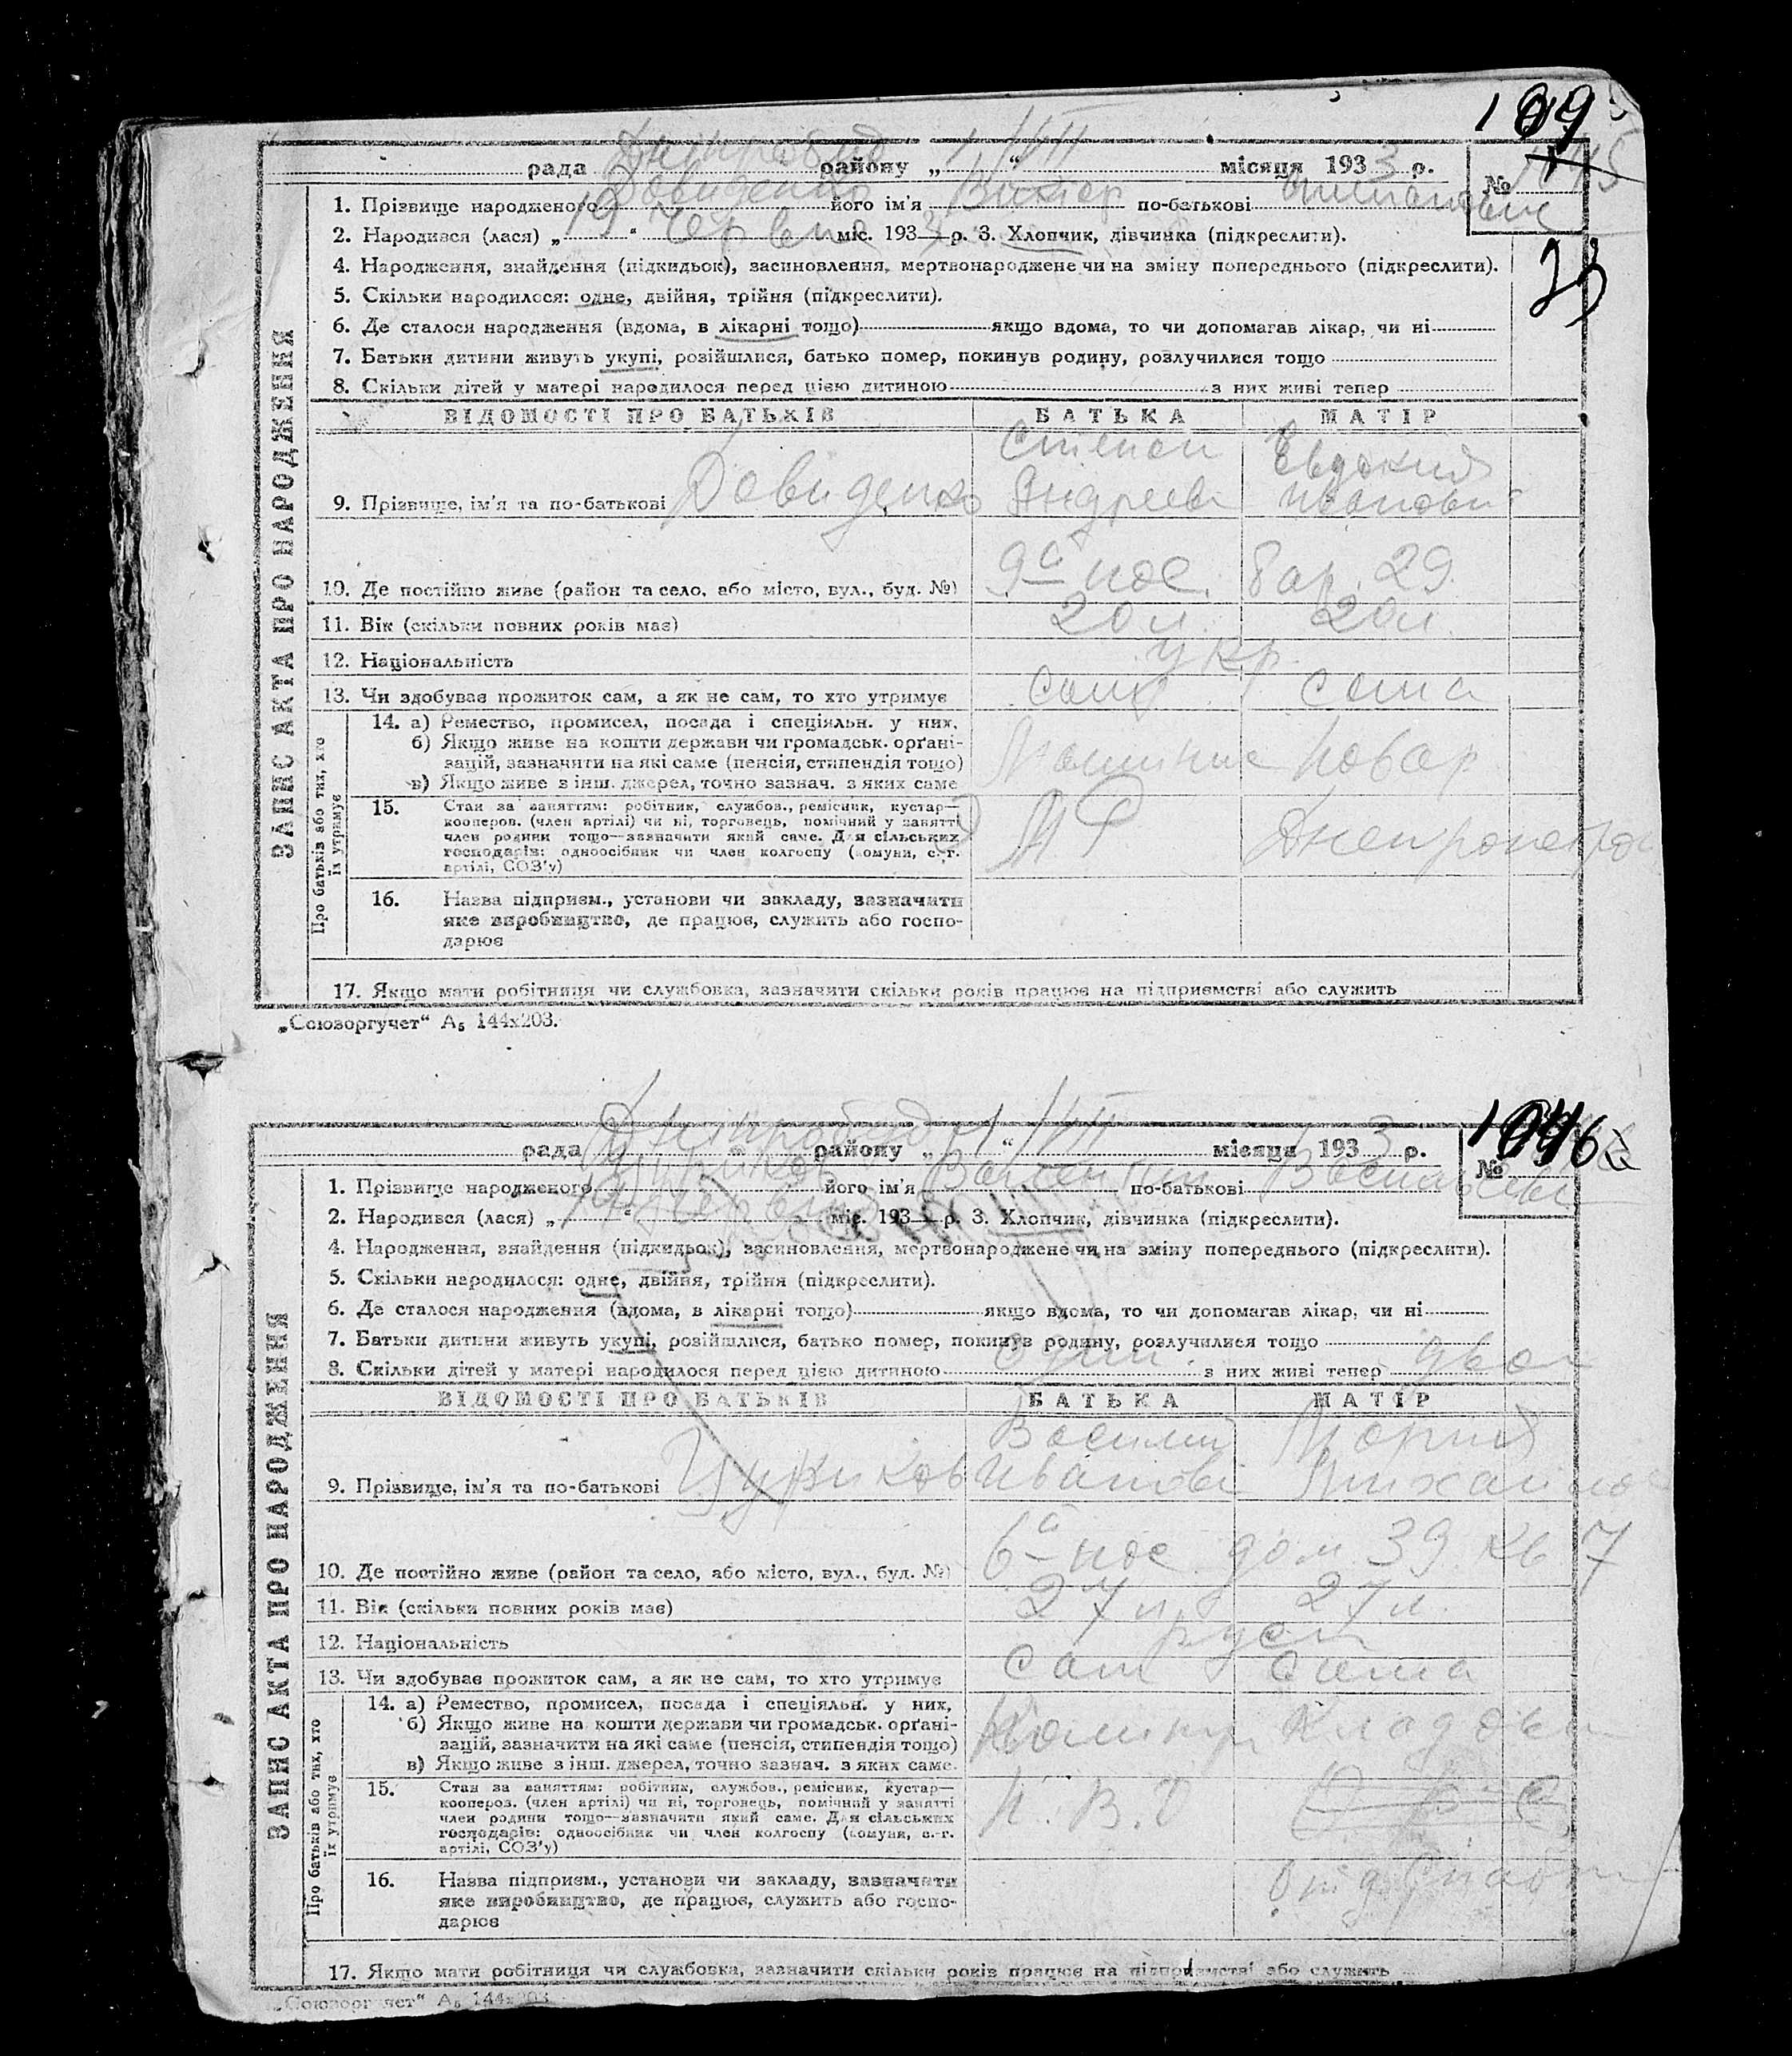 109
рада Дніпробуд району „ 1 “ VII місяця 1933 р.
№ 1045
1. Прізвище народженого Давиденко його ім'я Виктор по-батькові
2. Народився (лася) „ 19 “ Червня міс. 1933 р. 3. Хлопчик, дівчинка (підкреслити).
4. Народження, знайдення (підкидьок), засиновлення, мертвонароджене чи на зміну попереднього (підкреслити).
5. Скільки народилося: одне, двійня, трійня (підкреслити).
6. Де сталося народження (вдома, в лікарні тощо) якщо вдома, то чи допомагав лікар, чи ні
7. Батьки дитини живуть укупі, розійшлися, батько помер, покинув родину, розлучилися тощо
8. Скільки дітей у матері народилося перед цією дитиною з них живі тепер
ЗАПИС АКТА ПРО НАРОДЖЕННЯ
ВІДОМОСТІ ПРО БАТЬКІВ БАТЬКА МАТІР
Степан Евдокия
9. Прізвище, ім'я та по-батькові Давиденко Андреев Иванови
10. Де постійно живе (район та село, або місто, вул., буд. №) 9а пос. бар. 29.
11. Вік (скільки повних років має) 20 л. 20 л.
12. Національність укр.
13. Чи здобуває прожиток сам, а як не сам, то хто утримує сам сама
Про батьків або тих, хто їх утримує
14. а) Ремество, промисел, посада і спеціяльн. у них,
б) Якщо живе на кошти держави чи громадськ. орґані-
зацій, зазначити на які саме (пенсія, стипендія тощо)
в) Якщо живе з інш. джерел, точно зазнач. з яких саме
повар
15. Стан за заняттям: робітник, службов., ремісник, кустар—
кооперов. (член артілі) чи ні, торговець, помічний у занятті
член родини тощо—зазначити який саме. Для сільських
господарів: одноосібник чи член колгоспу (комуни, с.-г.
артілі, СОЗ'у)
Днепропетров
16. Назва підприєм., установи чи закладу, зазначити
яке виробництво, де працює, служить або госпо-
дарює
17. Якщо мати робітниця чи службовка, зазначити скільки років працює на підприємстві або служить
„Союзоргучет“ А5 144х203.
рада Дніпробуд району „ 1 “ VII місяця 1933 р.
№ 1046
1. Прізвище народженого Цуриков його ім'я Валентин по-батькові Васильеви
2. Народився (лася) „ 14 “ Червня міс. 193 р. 3. Хлопчик, дівчинка (підкреслити).
4. Народження, знайдення (підкидьок), засиновлення, мертвонароджене чи на зміну попереднього (підкреслити).
5. Скільки народилося: одне, двійня, трійня (підкреслити).
6. Де сталося народження (вдома, в лікарні тощо) якщо вдома, то чи допомагав лікар, чи ні
7. Батьки дитини живуть укупі, розійшлися, батько помер, покинув родину, розлучилися тощо
8. Скільки дітей у матері народилося перед цією дитиною один. з них живі тепер двох
ЗАПИС АКТА ПРО НАРОДЖЕННЯ
ВІДОМОСТІ ПРО БАТЬКІВ БАТЬКА МАТІР
Василий Мария
9. Прізвище, ім'я та по-батькові Цуриков Иванови Михайлов
10. Де постійно живе (район та село, або місто, вул., буд. №) 6а пос. дом 39 кв 7
11. Вік (скільки повних років має) 27 л. 27 л.
12. Національність русск
13. Чи здобуває прожиток сам, а як не сам, то хто утримує сам сама
Про батьків або тих, хто їх утримує
14. а) Ремество, промисел, посада і спеціяльн. у них,
б) Якщо живе на кошти держави чи громадськ. орґані-
зацій, зазначити на які саме (пенсія, стипендія тощо)
в) Якщо живе з інш. джерел, точно зазнач. з яких саме.
Кладов
15. Стан за заняттям: робітник, службов., ремісник, кустар—
кооперов. (член артілі) чи ні, торговець, помічний у занятті
член родини тощо—зазначити який саме. Для сільських
господарів: одноосібник чи член колгоспу (комуни, с.-г.
артілі, СОЗ'у)
16. Назва підприєм., установи чи закладу, зазначити
яке виробництво, де працює, служить або госпо-
дарює
17. Якщо мати робітниця чи службовка, зазначити скільки років працює на підприємстві або служить
„Союзоргучет“ А5 144х203